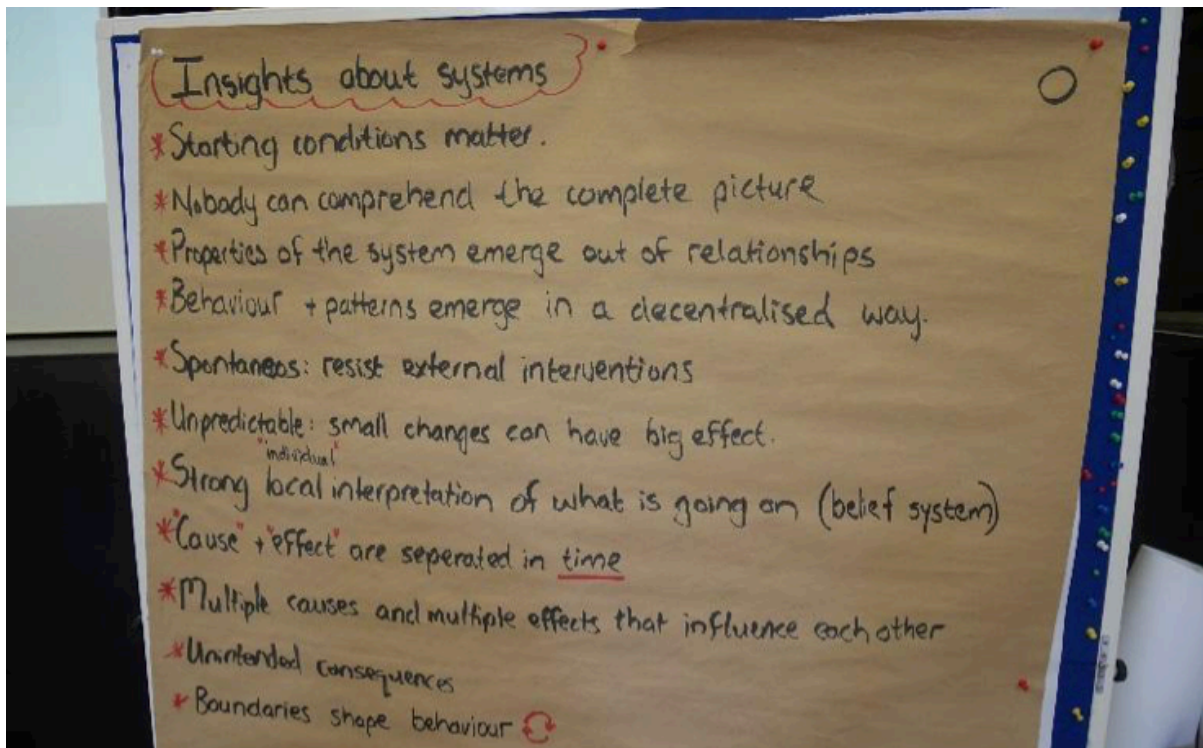 Insights about systems
* Starting conditions matter.
* Nobody can comprehend the complete picture
* Properties of the system emerge out of relationships
* Behaviour + patterns emerge in a decentralised way.
* Spontaneos: resist external interventions
* Unpredictable: small changes can have big effect.
"individual"
* Strong local interpretation of what is going on (belief system)
* "Cause" + "effect" are seperated in time
* Multiple causes and multiple effects that influence each other
* Unintended consequences
* Boundaries shape behaviour